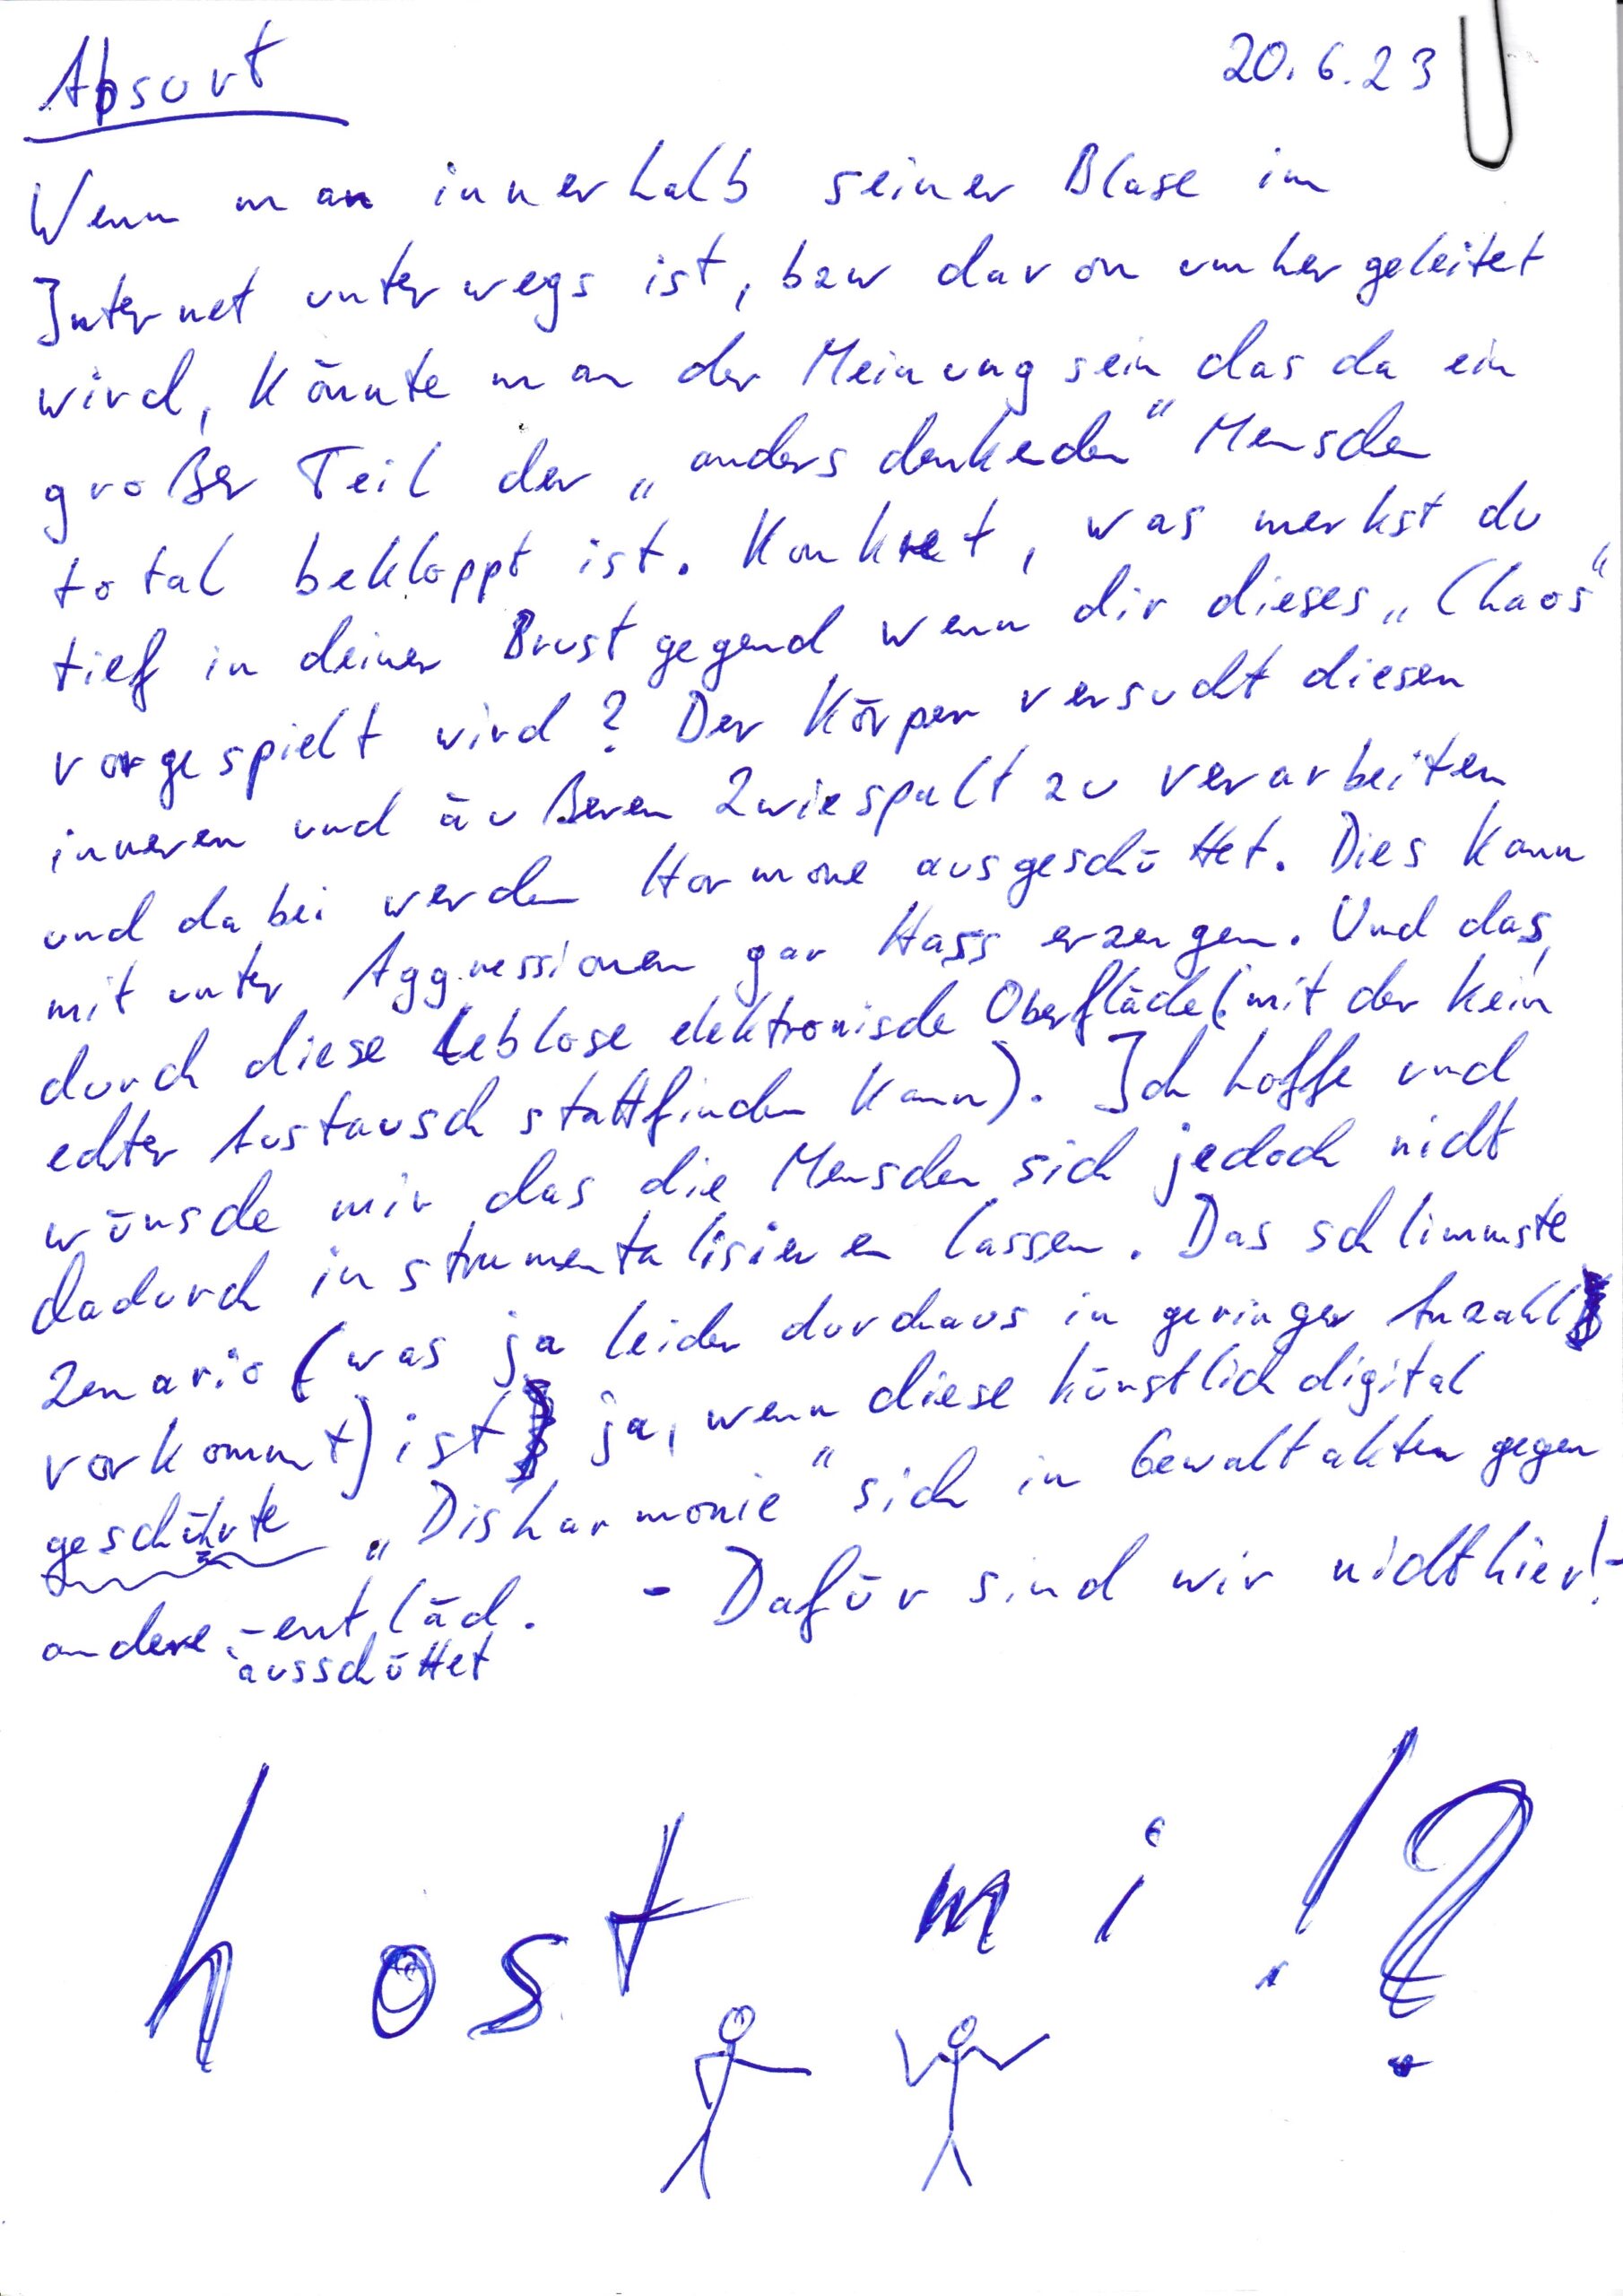 Absurt 20.6.23
Wenn man innerhalb seiner Blase im
Internet unterwegs ist, bzw davon umhergeleitet
wird, könnte man der Meinung sein das da ein
großer Teil der „anders denkeden" Menschen
total bekloppt ist. Konkret, was merkst du
tief in deiner Brustgegend wenn dir dieses „Chaos"
vorgespielt wird? Der Körper versucht diesen
inneren und äußeren Zwiespalt zu verarbeiten
und dabei werden Hormone ausgeschüttet. Dies kann
mit unter Aggressionen gar Hass erzeugen. Und das,
durch diese leblose elektronische Oberfläche (mit der kein
echter Austausch stattfinden kann). Ich hoffe und
wünsche mir das die Menschen sich jedoch nicht
dadurch instrumentalisieren lassen. Das schlimmste
Zenario (was ja leider durchaus in geringer Anzahl
vorkommt) ist ja, wenn diese künstlich digital
geschührte „Disharmonie" sich in Gewaltakten gegen
andere -entläd. - Dafür sind wir nicht hier!-
ausschüttet
host mi!?